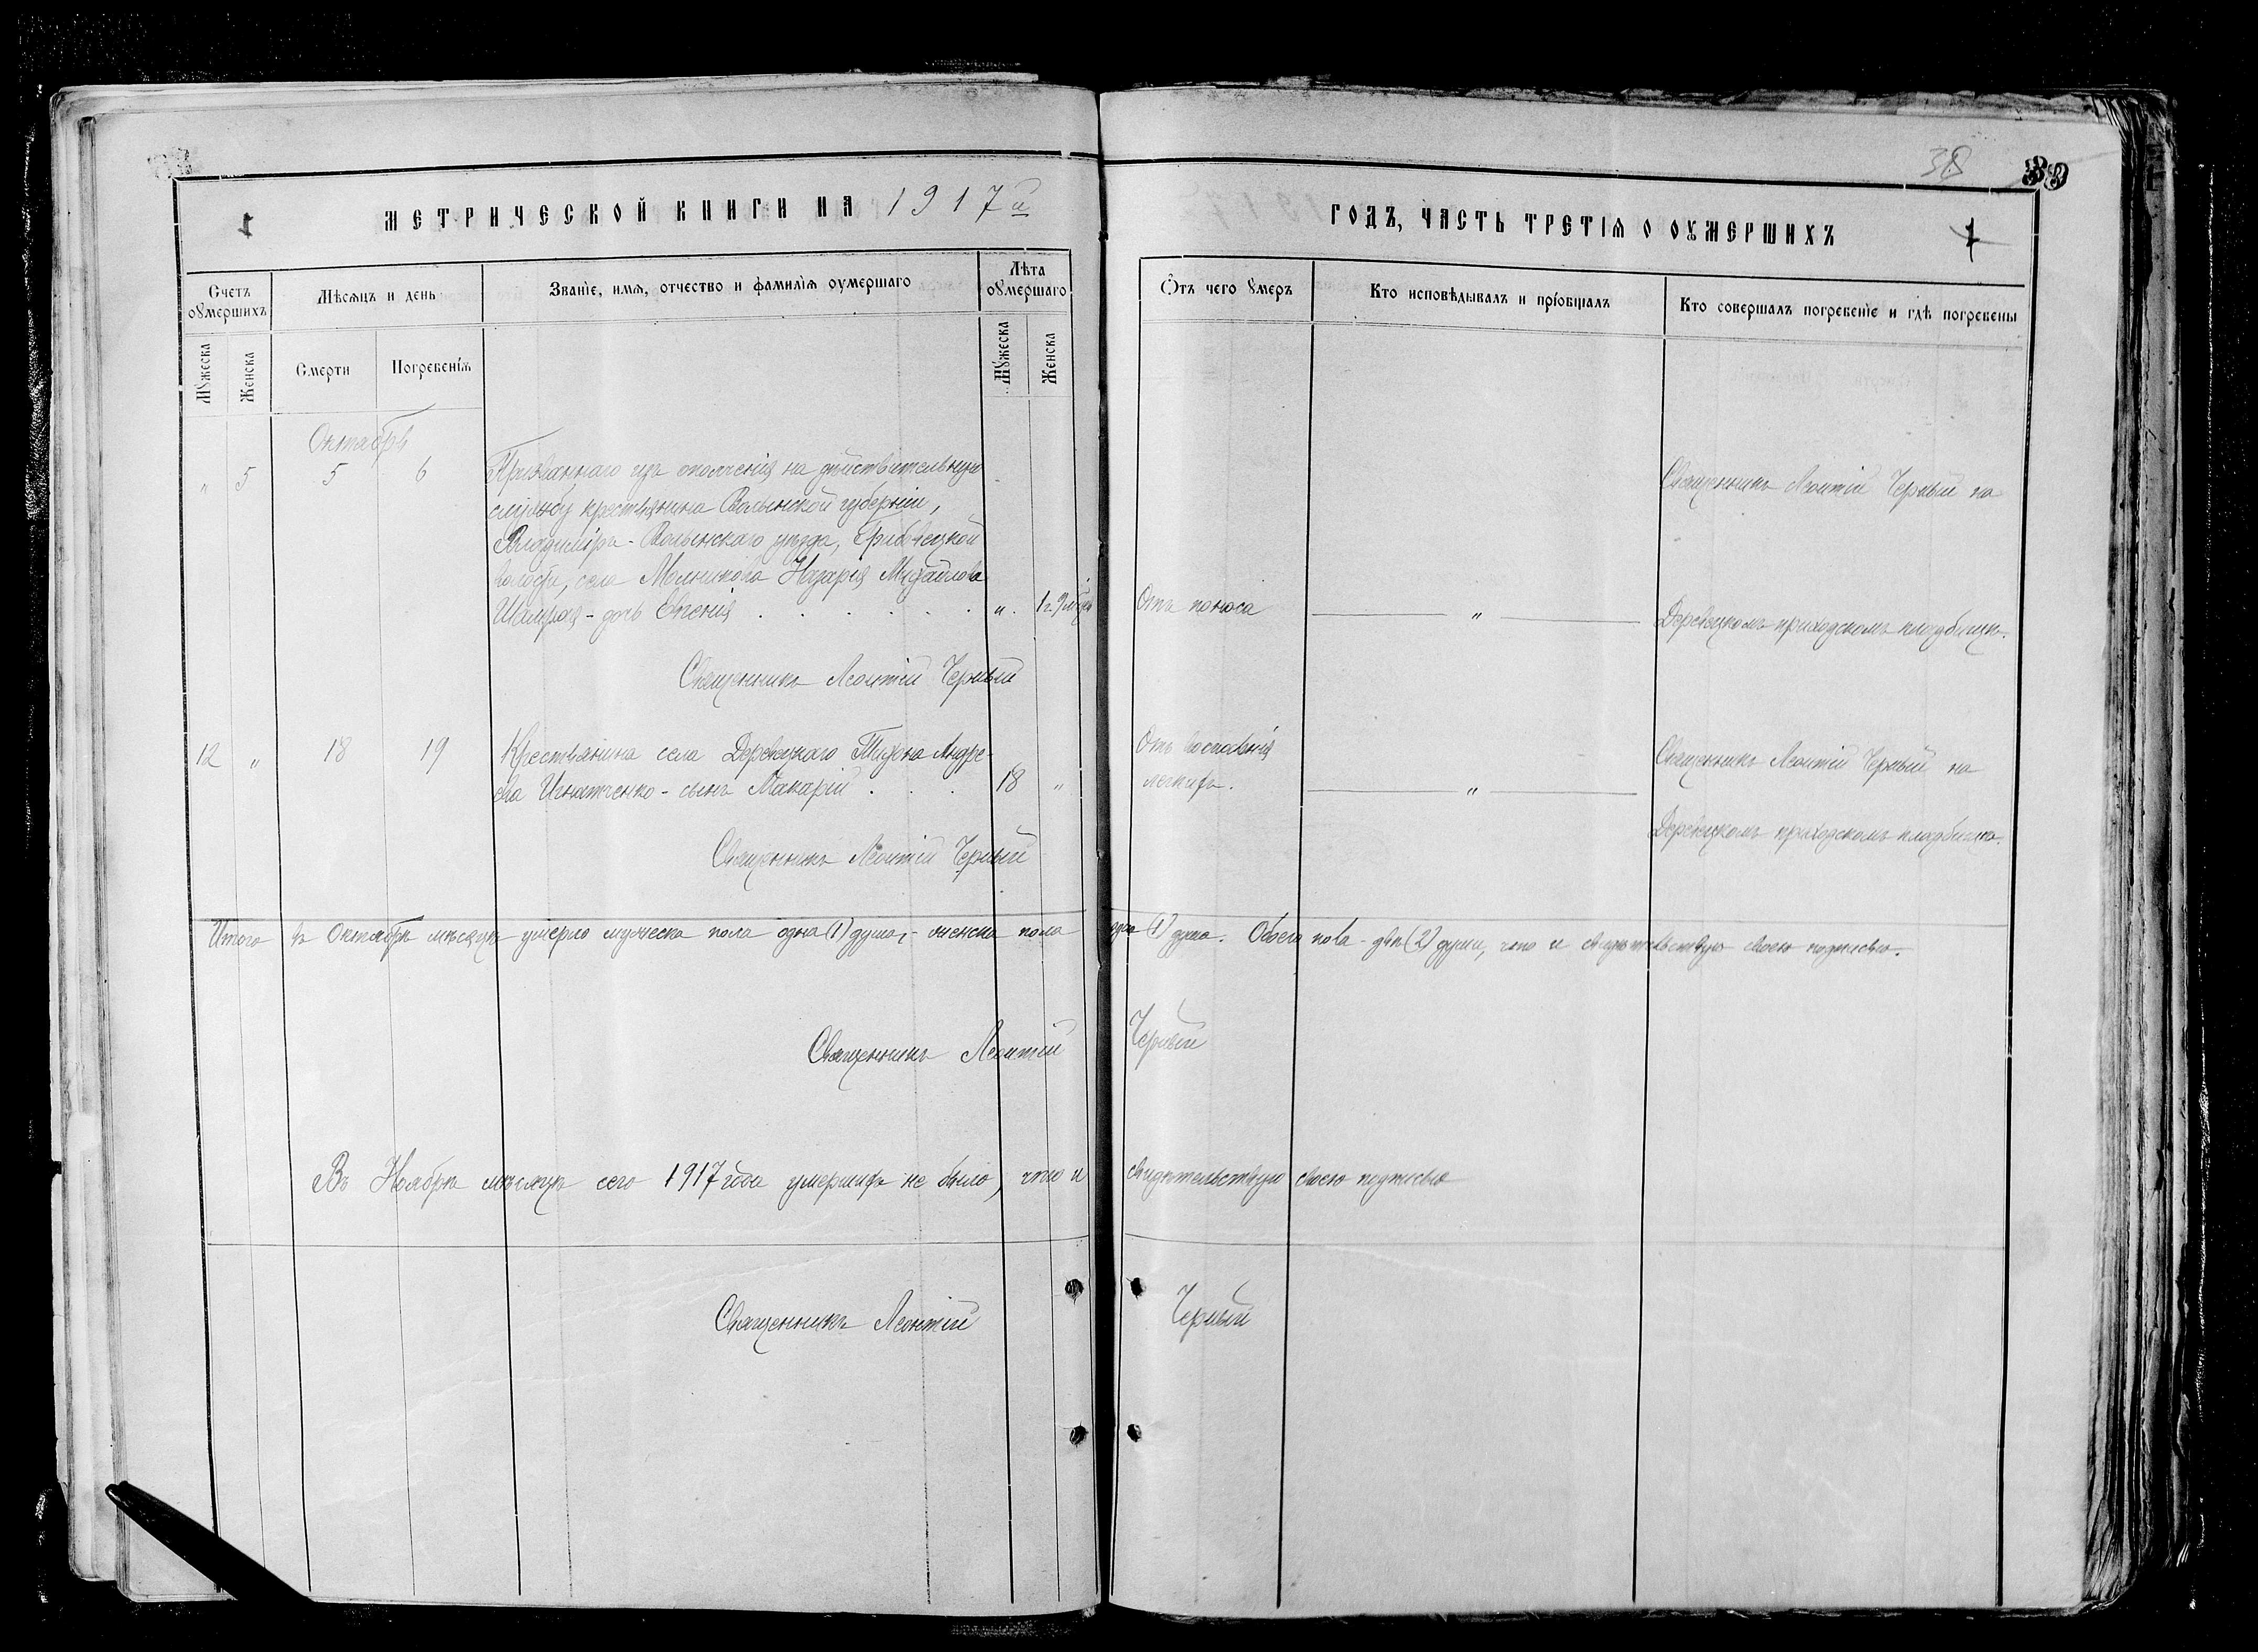 38
39
МЕТРИЧЕСКОЙ КНИГИ НА 1917й
ГОДЪ, ЧАСТЬ ТРЕТІѦ О ОУМЕРШИХЪ
1
1
Счетъ оумершихъ
Мѣсѧцъ и день
Званіе, имѧ, отчество и фамиліѧ оумершаго
Лѣта оумершаго
Мужеска
Женска
Смерти
Погребеніѧ
Мужеска
Женска
Ѿтъ чего умеръ
Кто исповѣдывалъ и пріобщалъ
Кто совершалъ погребеніе и гдѣ погребены
Октябрь
„ 5 5 6 Призваннаго изъ ополченія на дѣйствительную
службу крестьянина Волынской губерніи,
Владиміръ-Волынскаго уѣзда,
волости, села Мольникова Назарія Михайлова
дочь Евгенія . . . . . . „ 1 г. 9 мѣсяц
Отъ поноса
„
Священникъ Леонтій Черный на
Деревецкомъ приходскомъ кладбищѣ.
Священникъ Леонтій Черный
12 „ 18 19 Крестьянина села Деревецкаго Тихона Андре-
ева Игнатченко - сынъ Макарій . . . 18 „
Отъ воспаленія
легкихъ.
„
Священникъ Леонтій Черный на
Деревецкомъ приходскомъ кладбищѣ.
Священникъ Леонтій Черный
Итого въ Октябрѣ мѣсяцѣ умерло мужеска пола одна (1) душа, - женска пола одна (1) душа. Обоего пола - двѣ (2) души, что и свидѣтельствую своею подписью.
Священникъ Леонтій Черный
Въ Ноябрѣ мѣсяцѣ сего 1917 года умершихъ не было, что и свидѣтельствую своею подписью
Священникъ Леонтій Черный